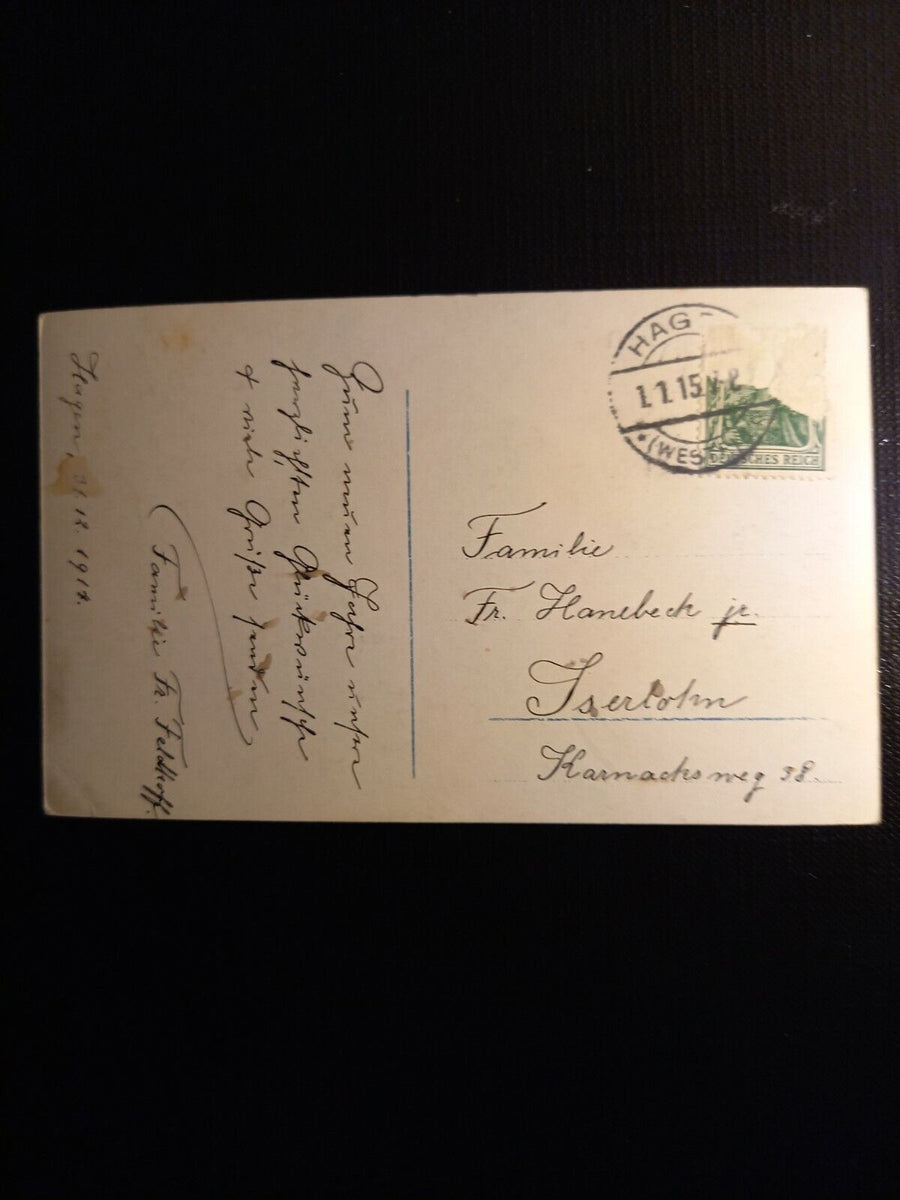 Zum neuen Jahre unsre
herzlichsten Glückwünsche
& viele Grüße senden
Familie Fr. Feldhoff.
Hagen, 31.12. 1914.
HAG
1.1.15.
*(WES
DEUTSCHES REICH
Familie
Fr. Hanebeck jr.
Iserlohn
Karnacksweg 38.